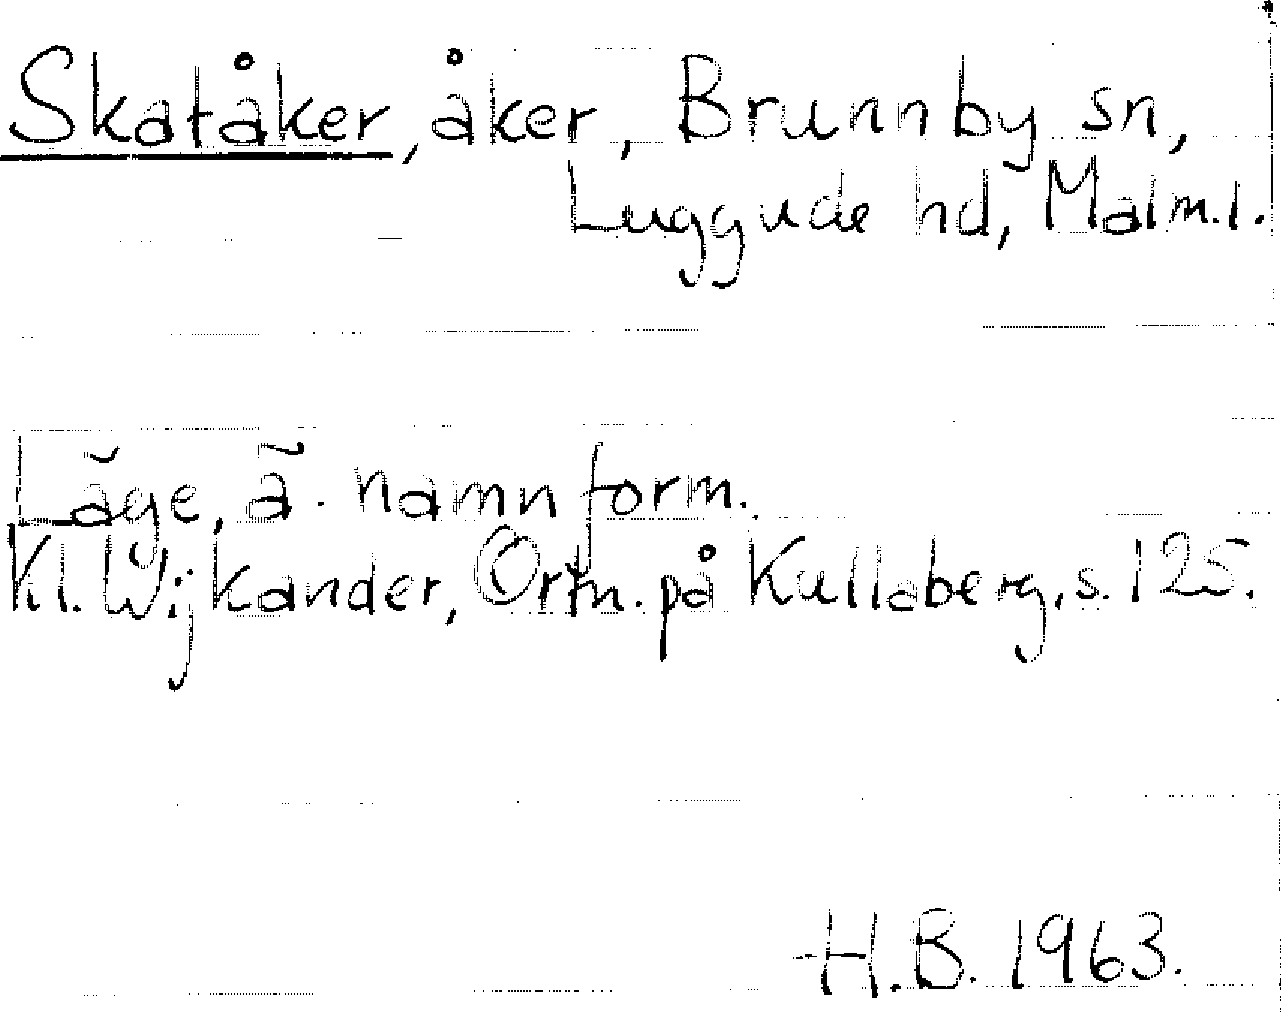 Skatåker, åker, Brunnby sn,
Luggude hd, Malm.l.
Läge, ä. namnform.
Kl. Wijkander, Ortn. på Kullaberg, s. 125.
H.B. 1963.